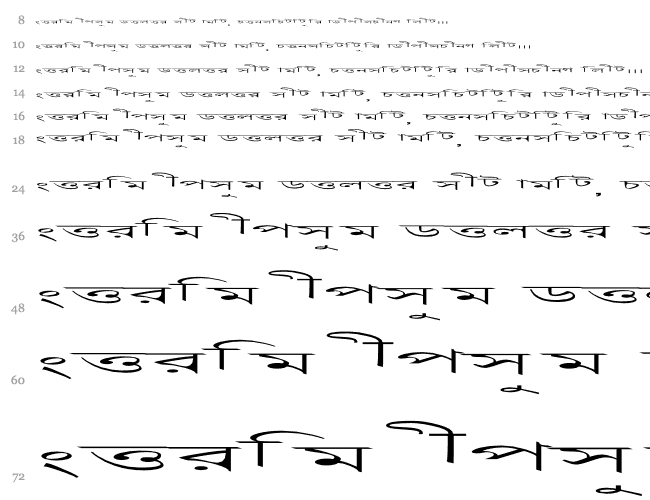 8 ংত্তরমি ীপসুম ডত্তলত্তর সীট ামটি, চত্তনসচিটটুিরি াডীপীসচীনণ লিীট।।।
10 ংত্তরমি ীপসুম ডত্তলত্তর সীট ামটি, চত্তনসচিটটুিরি াডীপীসচীনণ লিীট।।।
12 ংত্তরমি ীপসুম ডত্তলত্তর সীট ামটি, চত্তনসচিটটুিরি াডীপীসচীনণ লিীট।।।
14 ংত্তরমি ীপসুম ডত্তলত্তর সীট ামটি, চত্তনসচিটটুিরি াডীপীসচীন
16 ংত্তরমি ীপসুম ডত্তলত্তর সীট ামটি, চত্তনসচিটটুিরি াডীপ
18 ংত্তরমি ীপসুম ডত্তলত্তর সীট ামটি, চত্তনসচিটটুি
24 ংত্তরমি ীপসুম ডত্তলত্তর সীট ামটি, চ
36 ংত্তরমি ীপসুম ডত্তলত্তর
48 ংত্তরমি ীপসুম ডত্ত
60 ংত্তরমি ীপসুম
72 ংত্তরমি ীপসু